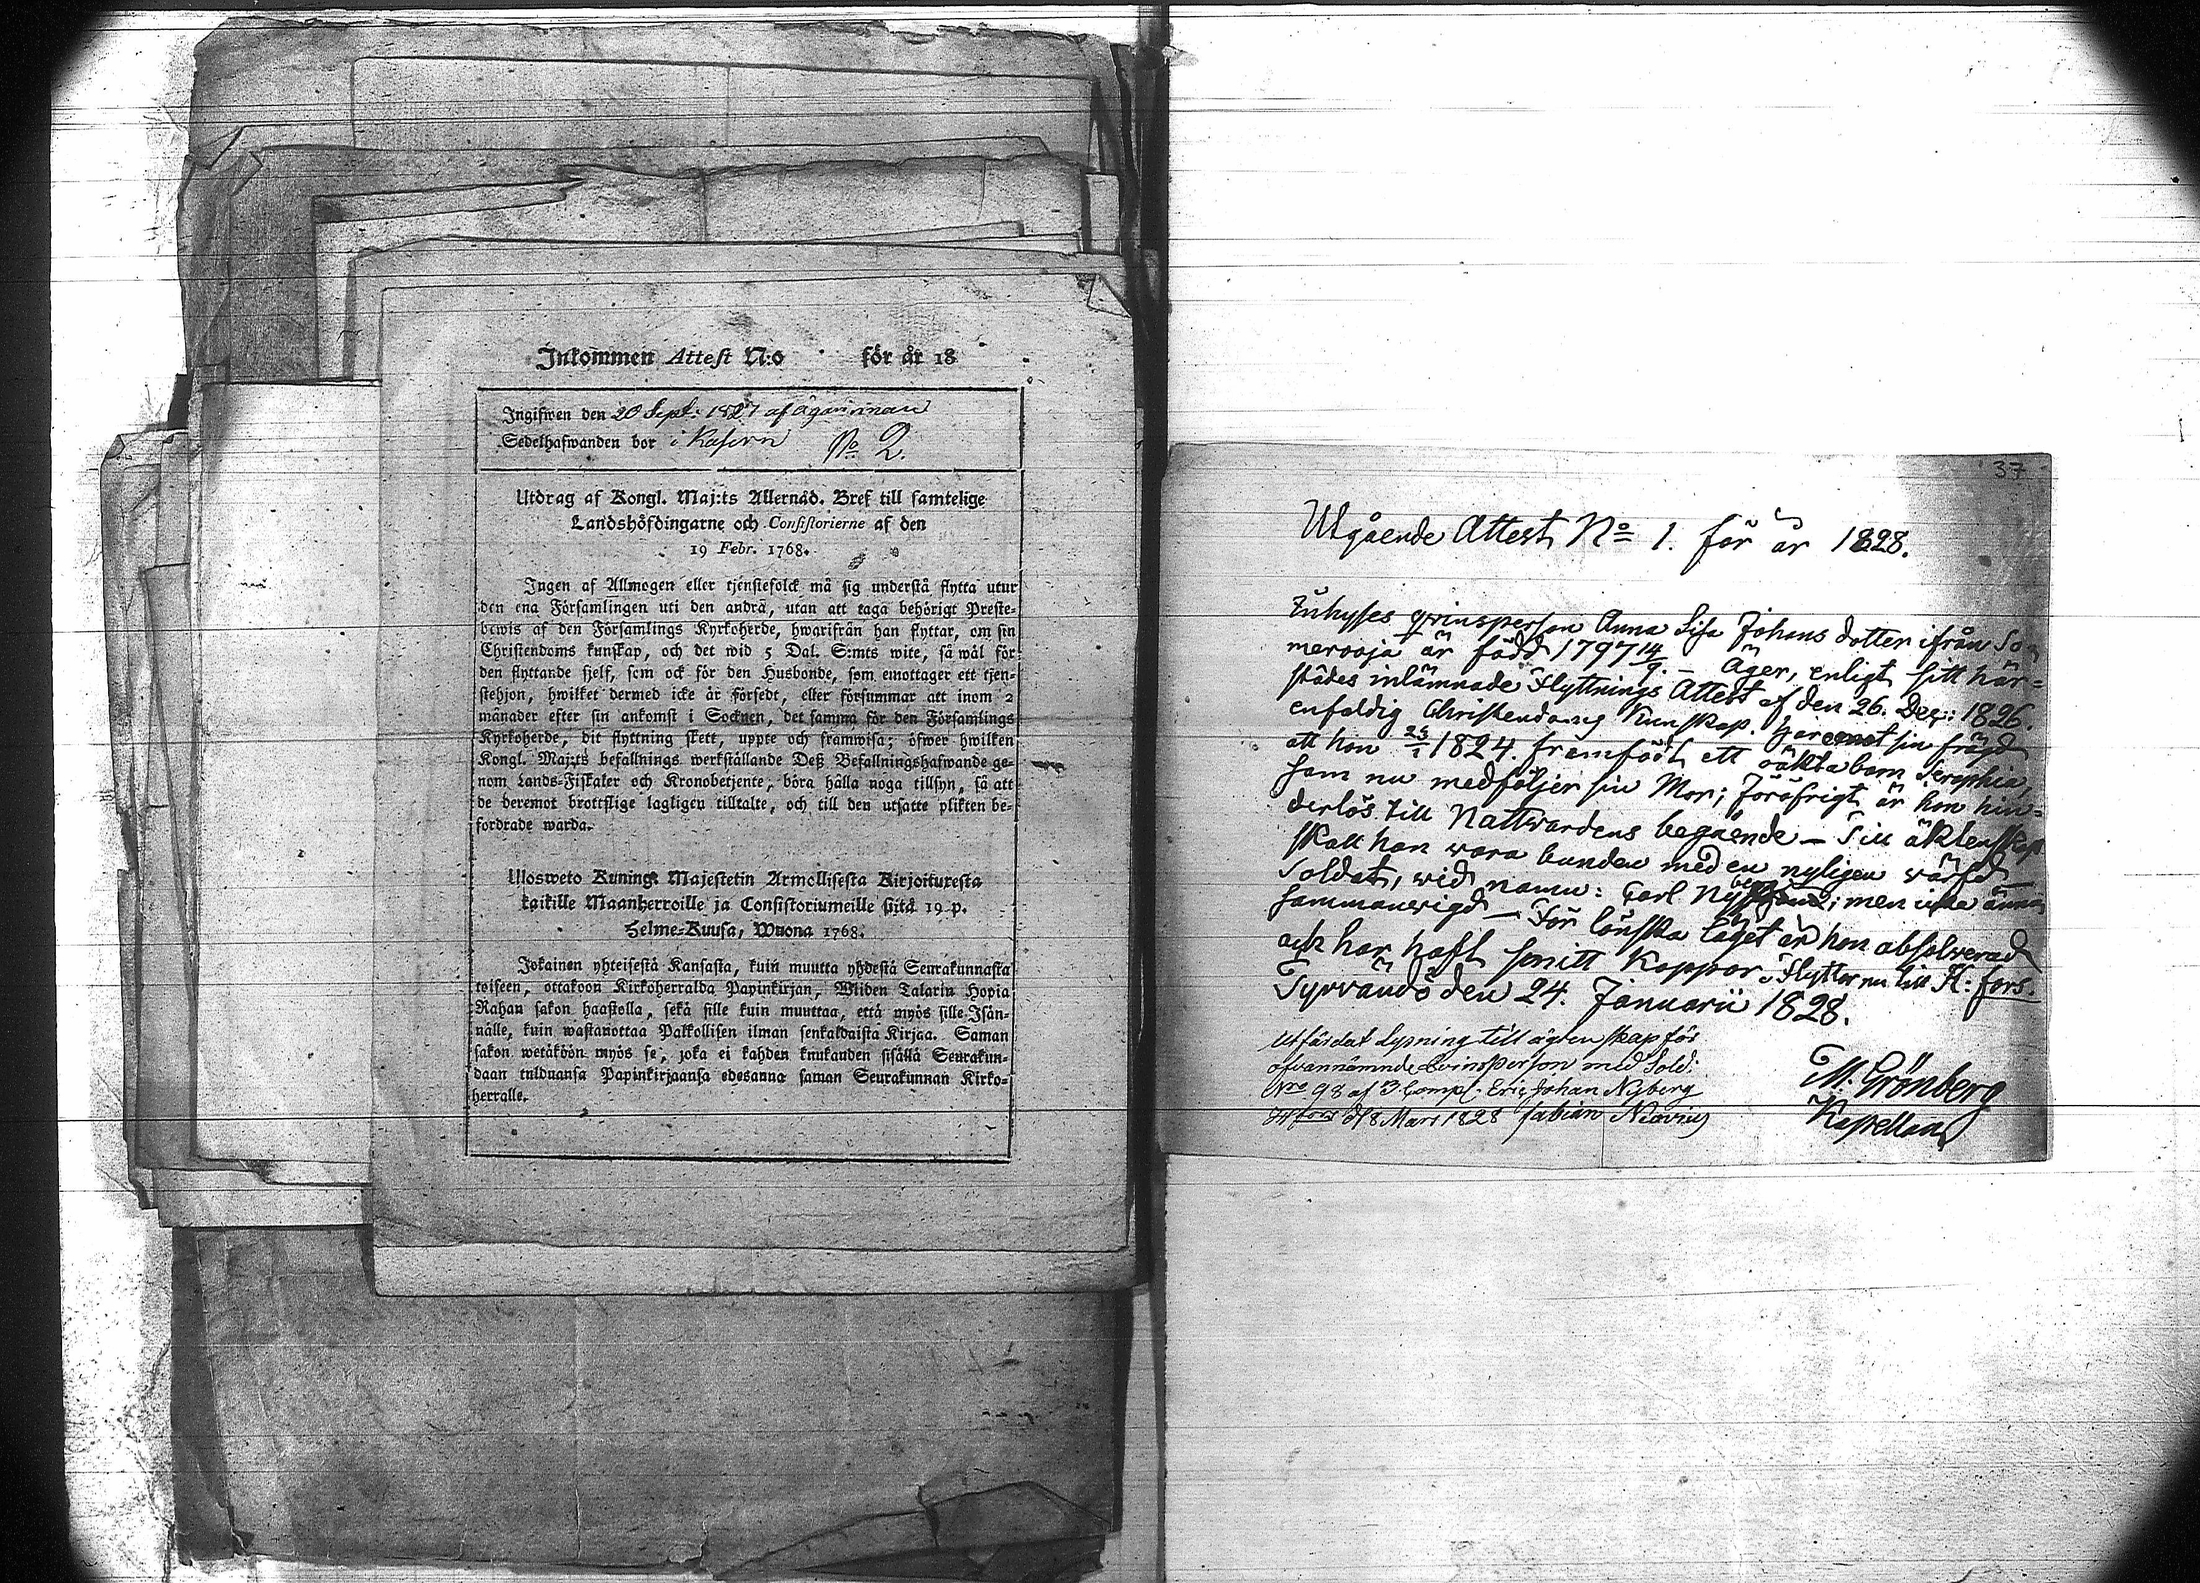 Inkommen Attest N:o för år 18
Ingifwen den 20 Sept: 1827 af äganinnan
Sedelhafwanden bor i Kasern No 2.
Utdrag af Kongl. Maj:ts Allernåd. Bref till samtelige
Landshöfdingarne och Consistorierne af den
19 Febr. 1768.
Ingen af Allmogen eller tjenstefolck må sig understå flytta utur
den ena Församlingen uti den andra, utan att taga behörigt Preste-
bewis af den Församlings Kyrkoherde, hwarifrån han flyttar, om sin
Christendoms kunskap, och det wid 5 Dal. S:mts wite, så wäl för
den flyttande sjelf, som ock för den Husbonde, som emottager ett tjen-
stehjon, hwilket dermed icke är försedt, eller försummar att inom 2
månader efter sin ankomst i Socknen, det samma för den Församlings
Kyrkoherde, dit flyttning skett, uppte och framwisa; öfwer hwilken
Kongl. Maj:ts befallnings werkställande Deß Befallningshafwande ge-
nom Lands-Fiskaler och Kronobetjente, böra hålla noga tillsyn, så att
de deremot brottslige lagligen tilltalte, och till den utsatte plikten be-
fordrade warda.
Ulosweto Kuning: Majestetin Armollisesta Kirjoituresta
kaikille Maanherroille ja Consistoriumeille siitä 19 p.
Helme-Kuusa, Wuona 1768.
Jokainen yhteisestä Kansasta, kuin muutta yhdestä Seurakunnasta
toiseen, ottakoon Kirkoherralda Papinkirjan, Wiiden Talarin Hopia
Rahan sakon haastolla, sekä sille kuin muuttaa, että myös sille Isän-
nälle, kuin wastanottaa Palkollisen ilman senkaldaista Kirjaa. Saman
sakon wetäköön myös se, joka ei kahden knukauden sisällä Seurakun-
daan tulduansa Papinkirjaansa edesanna saman Seurakunnan Kirko-
herralle.
37
Utgående Attest No 1. för år 1828.
Inhyses qvinsperson Anna Lisa Johans dotter ifrån So-
merooja är född 1797 14/9. – Äger, enligt sitt här-
städes inlämnade Flyttnings Attest af den 26. Dec: 1826.
enfaldig Christendoms Kunskap. hjaremot sin frägd
att hon 23/1 1824. framfödt ett oäkta barn Seraphia,
som nu medföljer sin Mor; Föröfrigt är hon hin-
derlös till Nattwardens begående – Till äktenskap
skall hon wara bunden med en nyligen wärfd
Soldat, wid namn: Carl Nyberg; men icke ännu
sammanwigd – För lönska läget är hon absolverad
och har haft smitt Koppor. Flytter nu till H:fors.
Tyrvändö den 24. Januarii 1828.
M. Grönberg
Kapellan
Utfärdat Lysning till ägtenskap för
ofvannämnde Qvinsperson med Sold:
Nro 98 af 3 Comp. Eric Johan Nyberg
H:fors d 8 Mars 1828 Fabian Neovius